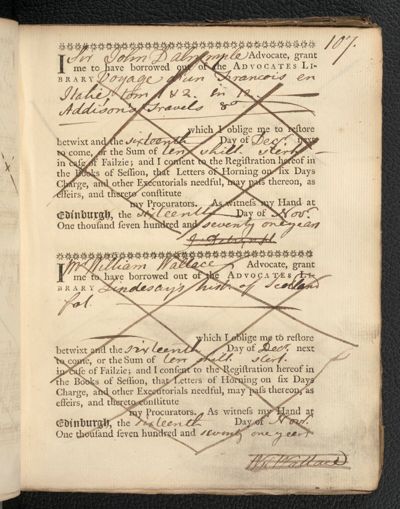 107.
I Sir John Dalrymple Advocate, grant
me to have borrowed out of the ADVOCATES LI-
BRARY Voyage d'un Francois en
Italie, tom 1 & 2. in 12.
Addison's Travels 8o
which I oblige me to reſtore
betwixt and the sixteenth Day of Decr. next
to come, or the Sum of ten shill. sterl.
in caſe of Failzie; and I conſent to the Regiſtration hereof in
the Books of Seſſion, that Letters of Horning on ſix Days
Charge, and other Executorials needful, may paſs thereon, as
effeirs, and thereto conſtitute
my Procurators. As witneſs my Hand at
Edinburgh, the sixteenth Day of Nov.
One thouſand ſeven hundred and seventy one years
I Mr William Wallace Advocate, grant
me to have borrowed out of the ADVOCATES LI-
BRARY Lindesay's hist. of Scotland
fol.
which I oblige me to reſtore
betwixt and the sixteenth Day of Decr. next
to come, or the Sum of ten shill. sterl.
in caſe of Failzie; and I conſent to the Regiſtration hereof in
the Books of Seſſion, that Letters of Horning on ſix Days
Charge, and other Executorials needful, may paſs thereon, as
effeirs, and thereto conſtitute
my Procurators. As witneſs my Hand at
Edinburgh, the sixteenth Day of Nov.
One thouſand ſeven hundred and seventy one years
Wallace